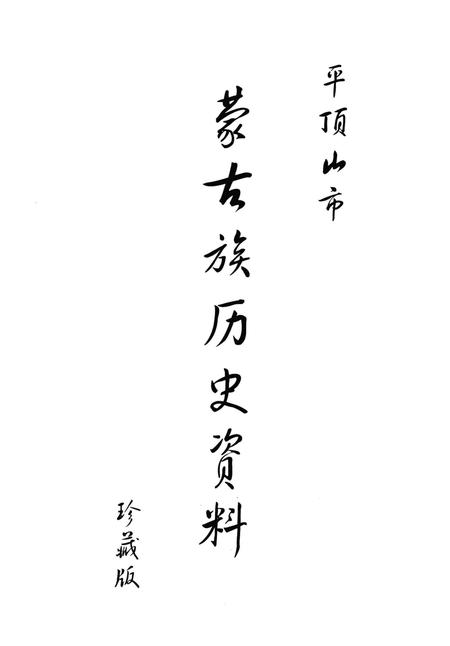 平顶山市
蒙古族历史資料
珍藏版